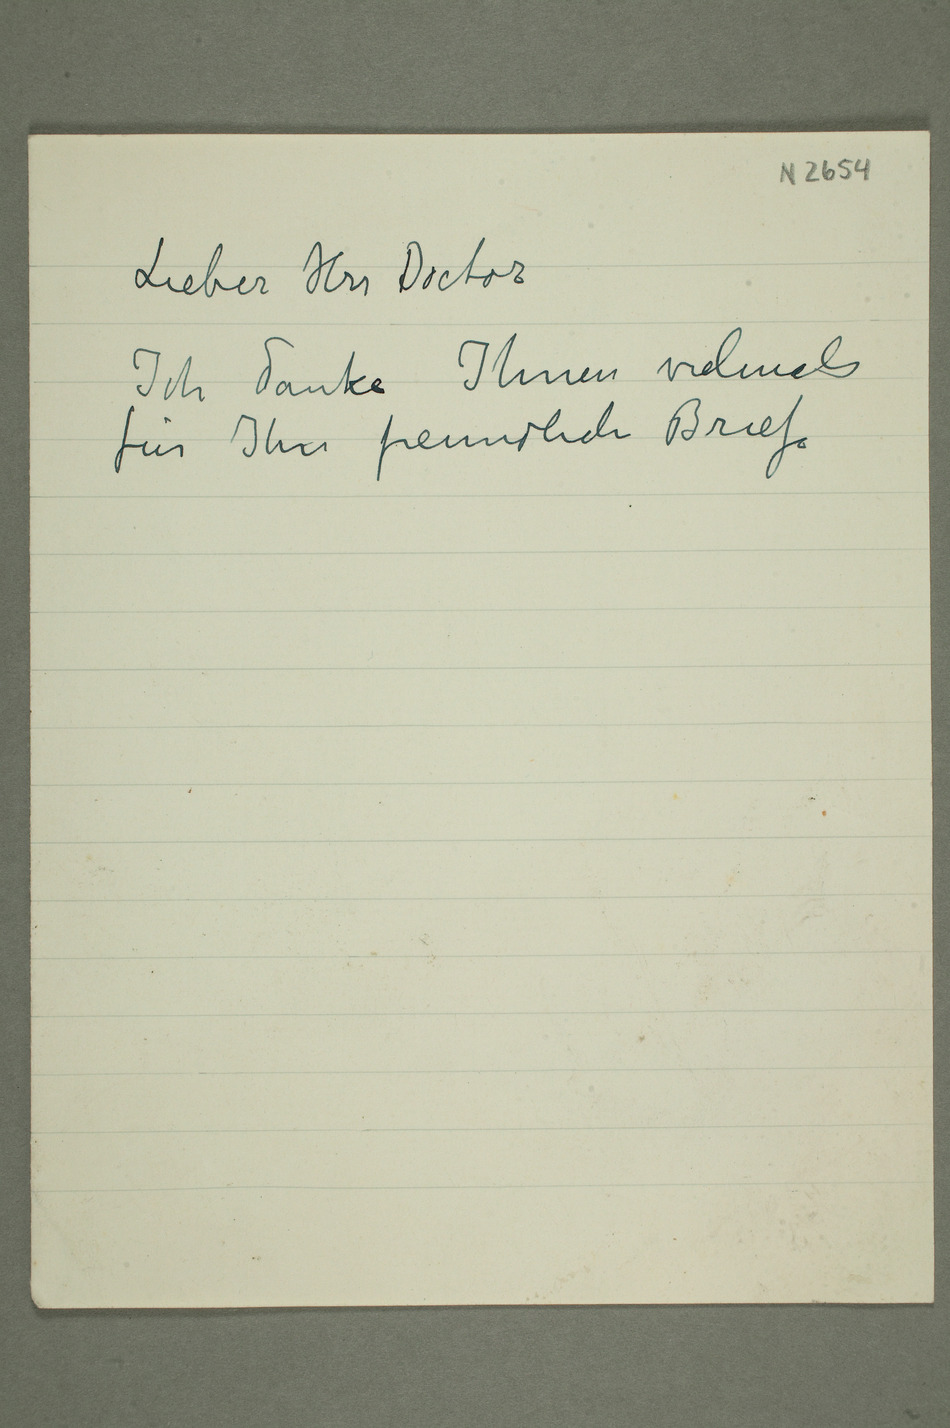 N 2654
Lieber Herr Doctor
Ich danke Ihnen vielmals
für Ihren freundlichen Brief.